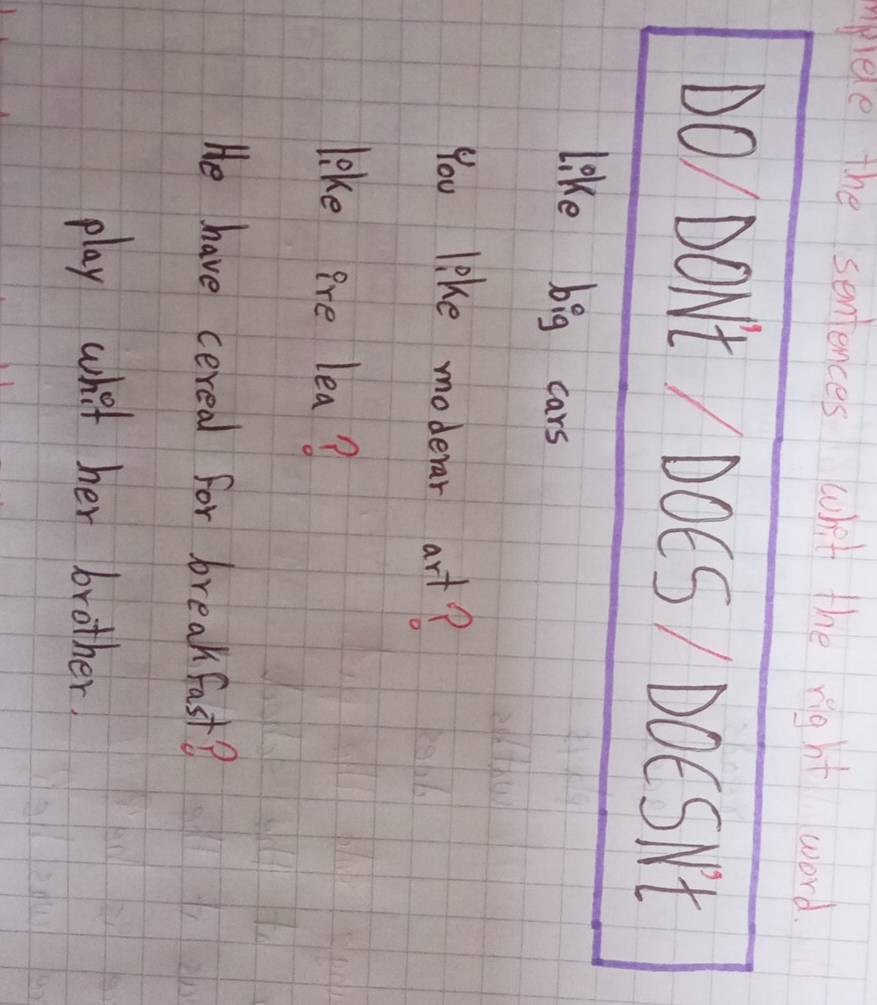 the sentences whit the right word.
DO / DON't / DOES / DOESN't
like big cars
You like moderar art?
like ire lea?
He have cereal for breakfast?
play whit her brother.